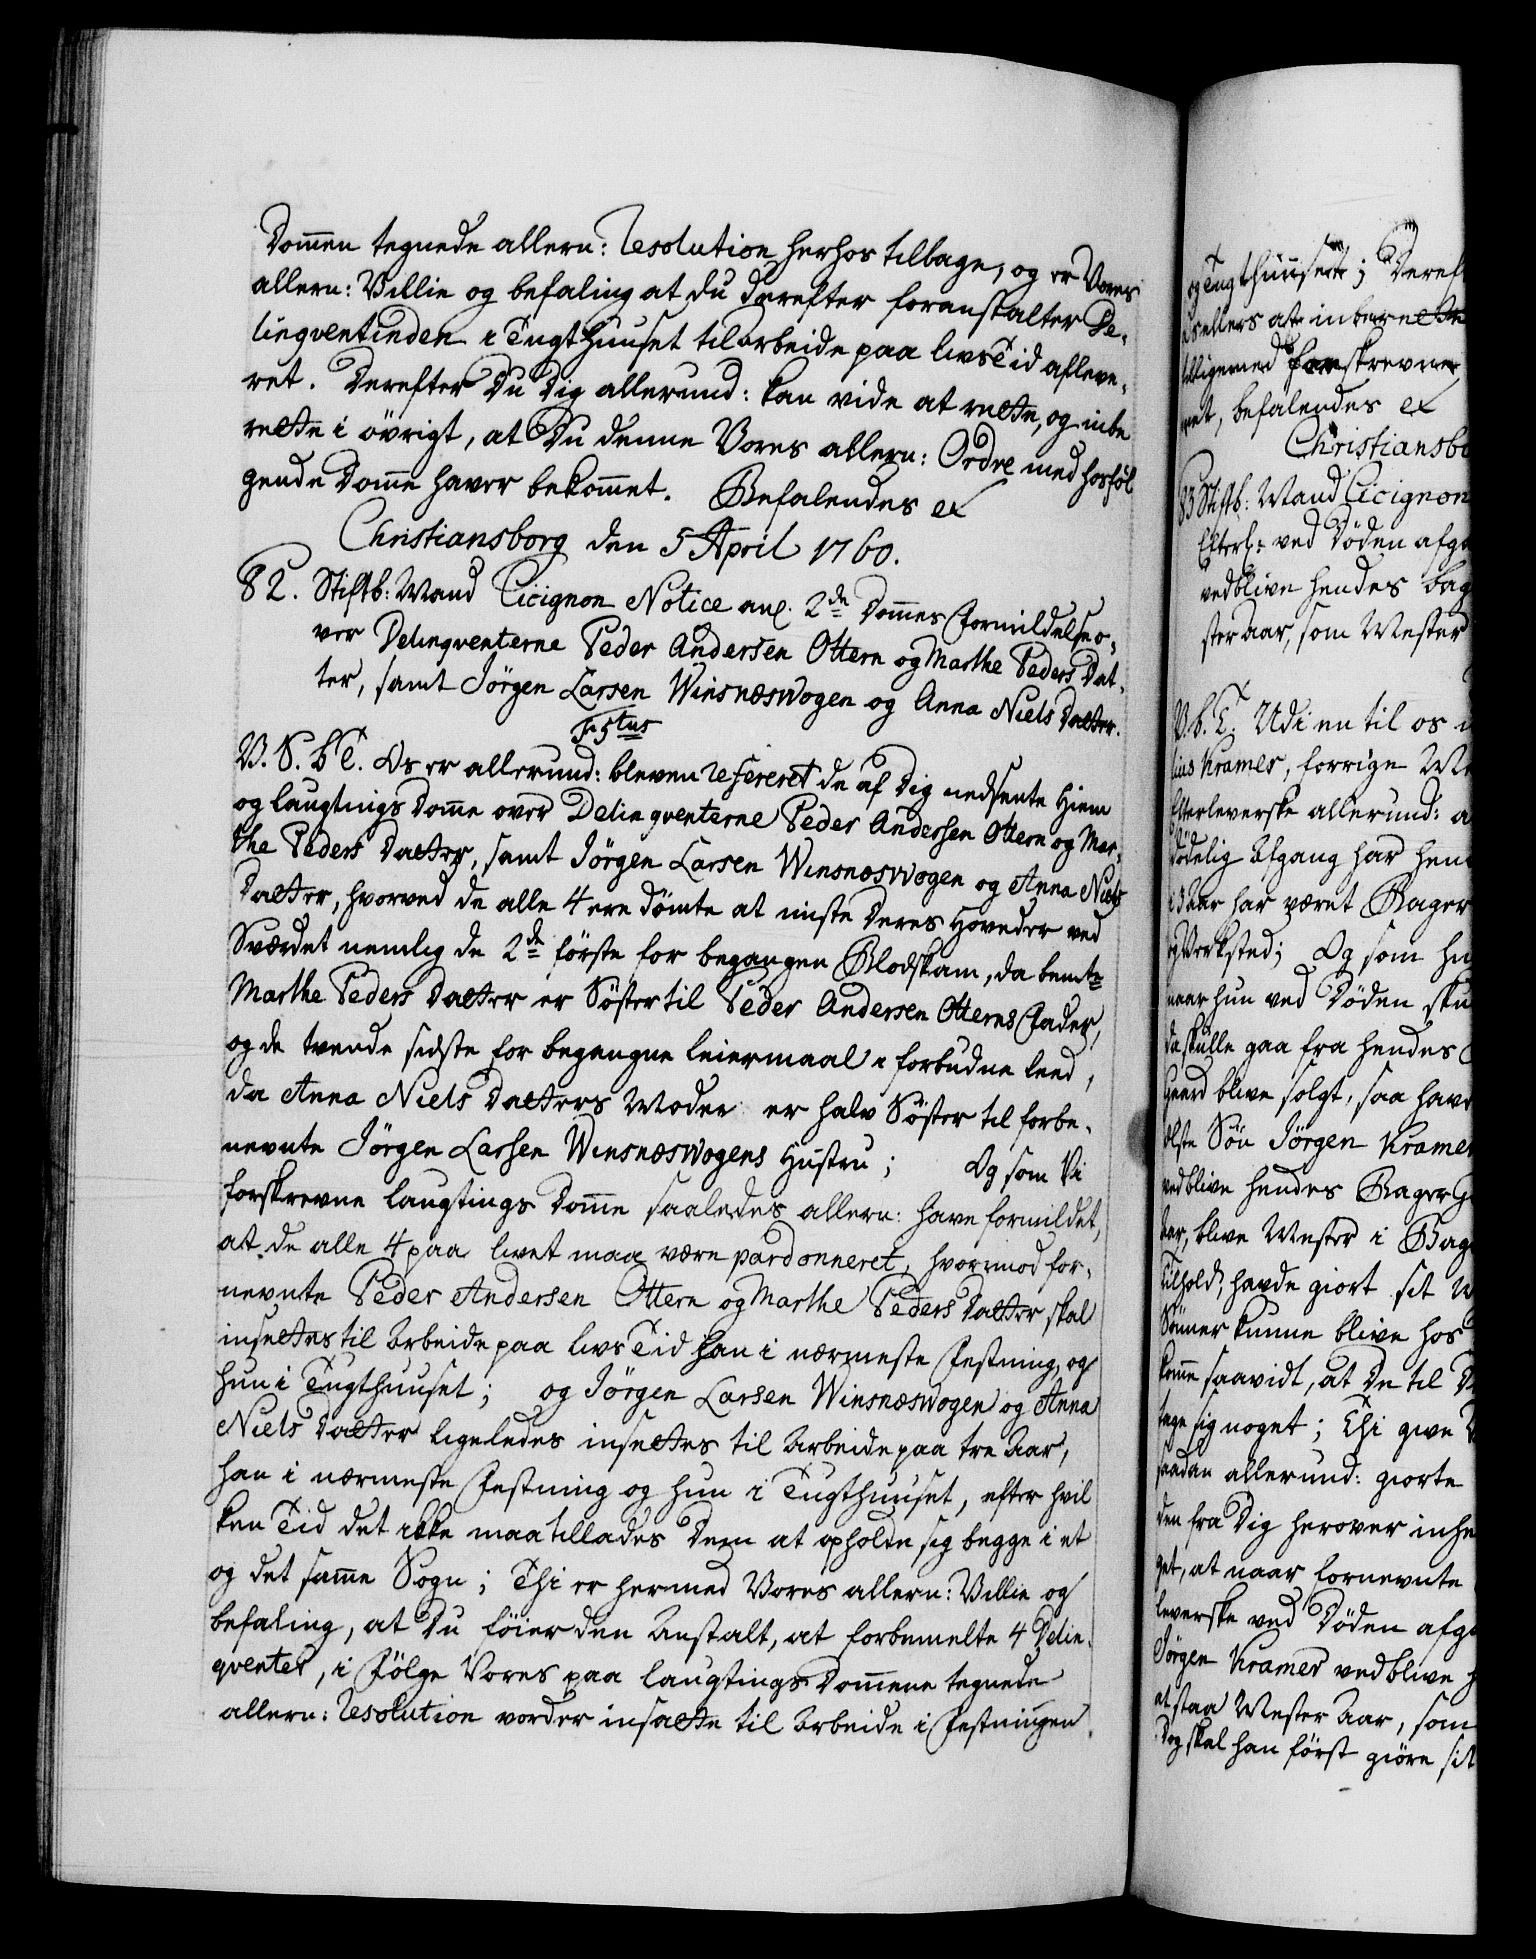 Dom̄en tegnede allern: Resolution herhos tilbage, og er Vores
allern: Villie og befaling at du derefter foranstalter De-
linqventinden i Tugthuuset til arbeide paa livs Tid afleve-
ret. Derefter Du Dig allerund: kan vide at rette, og inbe
rette i övrigt, at Du denne Vores allern: Ordre med hosföl
gende Dom̄e haver bekom̄et. Befalendes et
Christiansborg den 5 April 1760.
82. Stiftb: Mand Cicignon Notice ang. 2de Dom̄es Formildelse o-
ver Delinqventerne Peder Andersen Ottern og Marthe Peders Dat-
ter, samt Jörgen Larsen Winsnæswogen og Anna Niels Datter.
F. 5tus
V. S. b T. Os er allerund: bleven refereret de af Dig nedsente Hiem
og laugtings Dom̄e over Delinqventerne Peder Andersen Ottern og Mar-
the Peders Datter, samt Jörgen Larsen Winsnæswogen og Anna Niels
Datter, hvorved de alle 4 ere dömte at miste Deres Hoveder ved
Sværdet nemlig de 2de förste for begangen Blodskam, da bemte
Marthe Peders Datter er Söster til Peder Andersen Otterns Fader,
og de tvende sidste for begangne leiermaal i forbudne leed,
da Anna Niels Datters Moder er halv Söster til forbe-
nevnte Jörgen Larsen Winsnæswogens Hustru; Og som Vi
forskrevne laugtings Dom̄e saaledes allern: have formildet,
at de alle 4 paa livet maa være pardonneret, hvorimod for-
nevnte Peder Andersen Ottern og Marthe Peders Datter skal
insettes til Arbeide paa livs Tid han i nærmeste Festning, og
hun i Tugthuuset; og Jörgen Larsen Winsnæswogen og Anna
Niels Datter ligeledes insettes til Arbeide paa tre Aar,
han i nærmeste Festning og hun i Tugthuuset, efter hvil
ken Tid det ikke maa tillades Dem at opholde sig begge i et
og det sam̄e Sogn; Thi er hermed Vores allern: Villie og
befaling, at Du föier den Anstalt, at forbemelte 4 Delin-
qventer, i Fölge Vores paa laugtings Dom̄ene tegnede
allern: Resolution vorder insatte til Arbeide i Festningen
og Tugthuuset; Deref
Dsellers at inberette
tilligemed forskrevne
met, befalendes et
Christiansbo
83 Stiftb: Mand Cicignon
Efterl: ved Döden afga
vedblive hendes bag
ster Aar, som Mester
V. b. T. Udi en til os
lius Kramer, forrige Me
Efterleverske allerund: a
dödelig Afgang har hen
i 3 Aar har været Bager
og Verksted; Og som hu
naar hun ved Döden sku
da skulle gaa fra hendes
Gaard blive solgt, saa havd
elste Sön Jörgen Kramer
vedblive hendes Bager
Aar, blive Mester i Bag
Tilhold, havde giort sit M
Sönner kunne blive hos
kom̄e saavidt, at De til D
tage sig noget; Thi give
saadan allerund: giorte
den fra Dig herover inhe
get, at naar fornevnte
leverske ved Döden afga
Jörgen Kramer vedblive h
at staa Mester Aar, som
Dog skal han först giöre sit